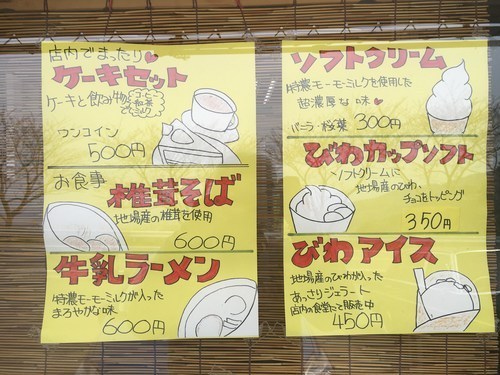 店内でまったり♥
ケーキセット
ケーキと飲み物
コーヒー
紅茶
ミルク
ワンコイン
500円
お食事
椎茸そば
地場産の椎茸を使用
600円
牛乳ラーメン
特濃モーモーミルクが入った
まろやかな味
600円
ソフトクリーム
特濃モーモーミルクを使用した
超濃厚な味♥
バニラ・桜葉
300円
びわカップソフト
ソフトクリームに
地場産のびわ、
チョコをトッピング
350円
びわアイス
地場産のびわが入った
あっさりジェラート
店内の食堂にて販売中
450円